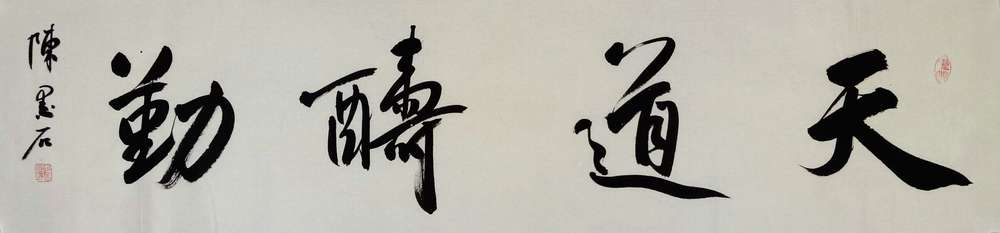 天道酬勤
陳墨石